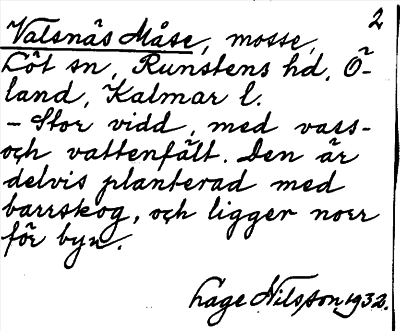 2
Valsnäs Måse, mosse,
Löt sn, Runstens hd, Ö-
land, Kalmar l.
- Stor vidd, med vass-
och vattenfält. Den är
delvis planterad med
barrskog, och ligger norr
för byn.
Lage Nilsson 1932.